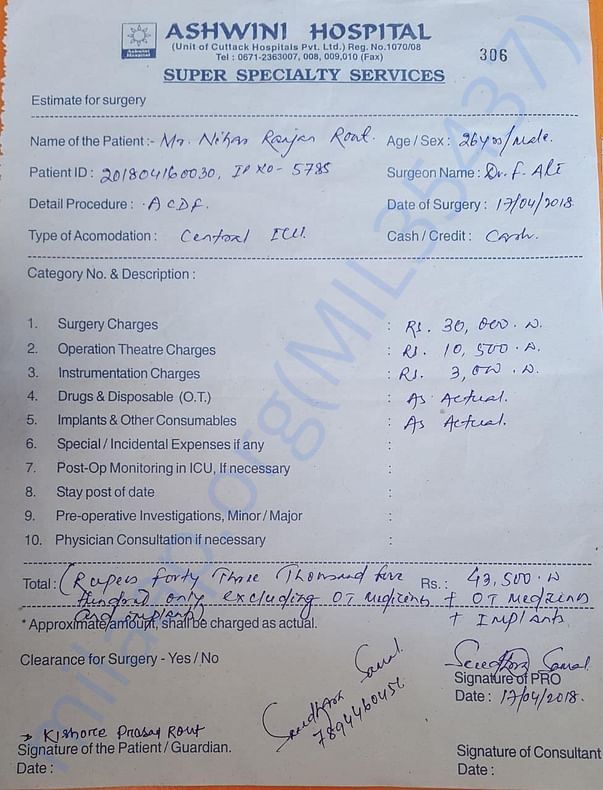 ASHWINI HOSPITAL
Ashwini Hospital
(Unit of Cuttack Hospitals Pvt. Ltd.) Reg. No.1070/08
Tel : 0671-2363007, 008, 009,010 (Fax)
306
SUPER SPECIALTY SERVICES
Estimate for surgery
Name of the Patient :- Mr. Nihar Ranjan Rout. Age / Sex : 26yrs/male.
Patient ID : 201804160030, IP NO- 5785 Surgeon Name : Dr. F. Ali
Detail Procedure : ACDF. Date of Surgery : 17/04/2018
Type of Acomodation : Central ICU. Cash / Credit : Cash.
Category No. & Description :
1. Surgery Charges : Rs. 30,000.00
2. Operation Theatre Charges : Rs. 10,500.00
3. Instrumentation Charges : Rs. 3,000.00
4. Drugs & Disposable (O.T.) : As Actual.
5. Implants & Other Consumables : As Actual.
6. Special / Incidental Expenses if any :
7. Post-Op Monitoring in ICU, If necessary :
8. Stay post of date :
9. Pre-operative Investigations, Minor / Major :
10. Physician Consultation if necessary :
Total : (Rupees forty Three Thousand five Rs. : 43,500.00
Hundred only excluding OT Medicines + OT Medicines
and implants) + Implants
* Approximate amount, shall be charged as actual.
Clearance for Surgery - Yes / No
Samal
Signature of PRO
Date : 17/04/2018.
Samal
7894460456
Kishore Prasad Rout
Signature of the Patient / Guardian.
Date :
Signature of Consultant
Date :
milaap.org(MIL35437)